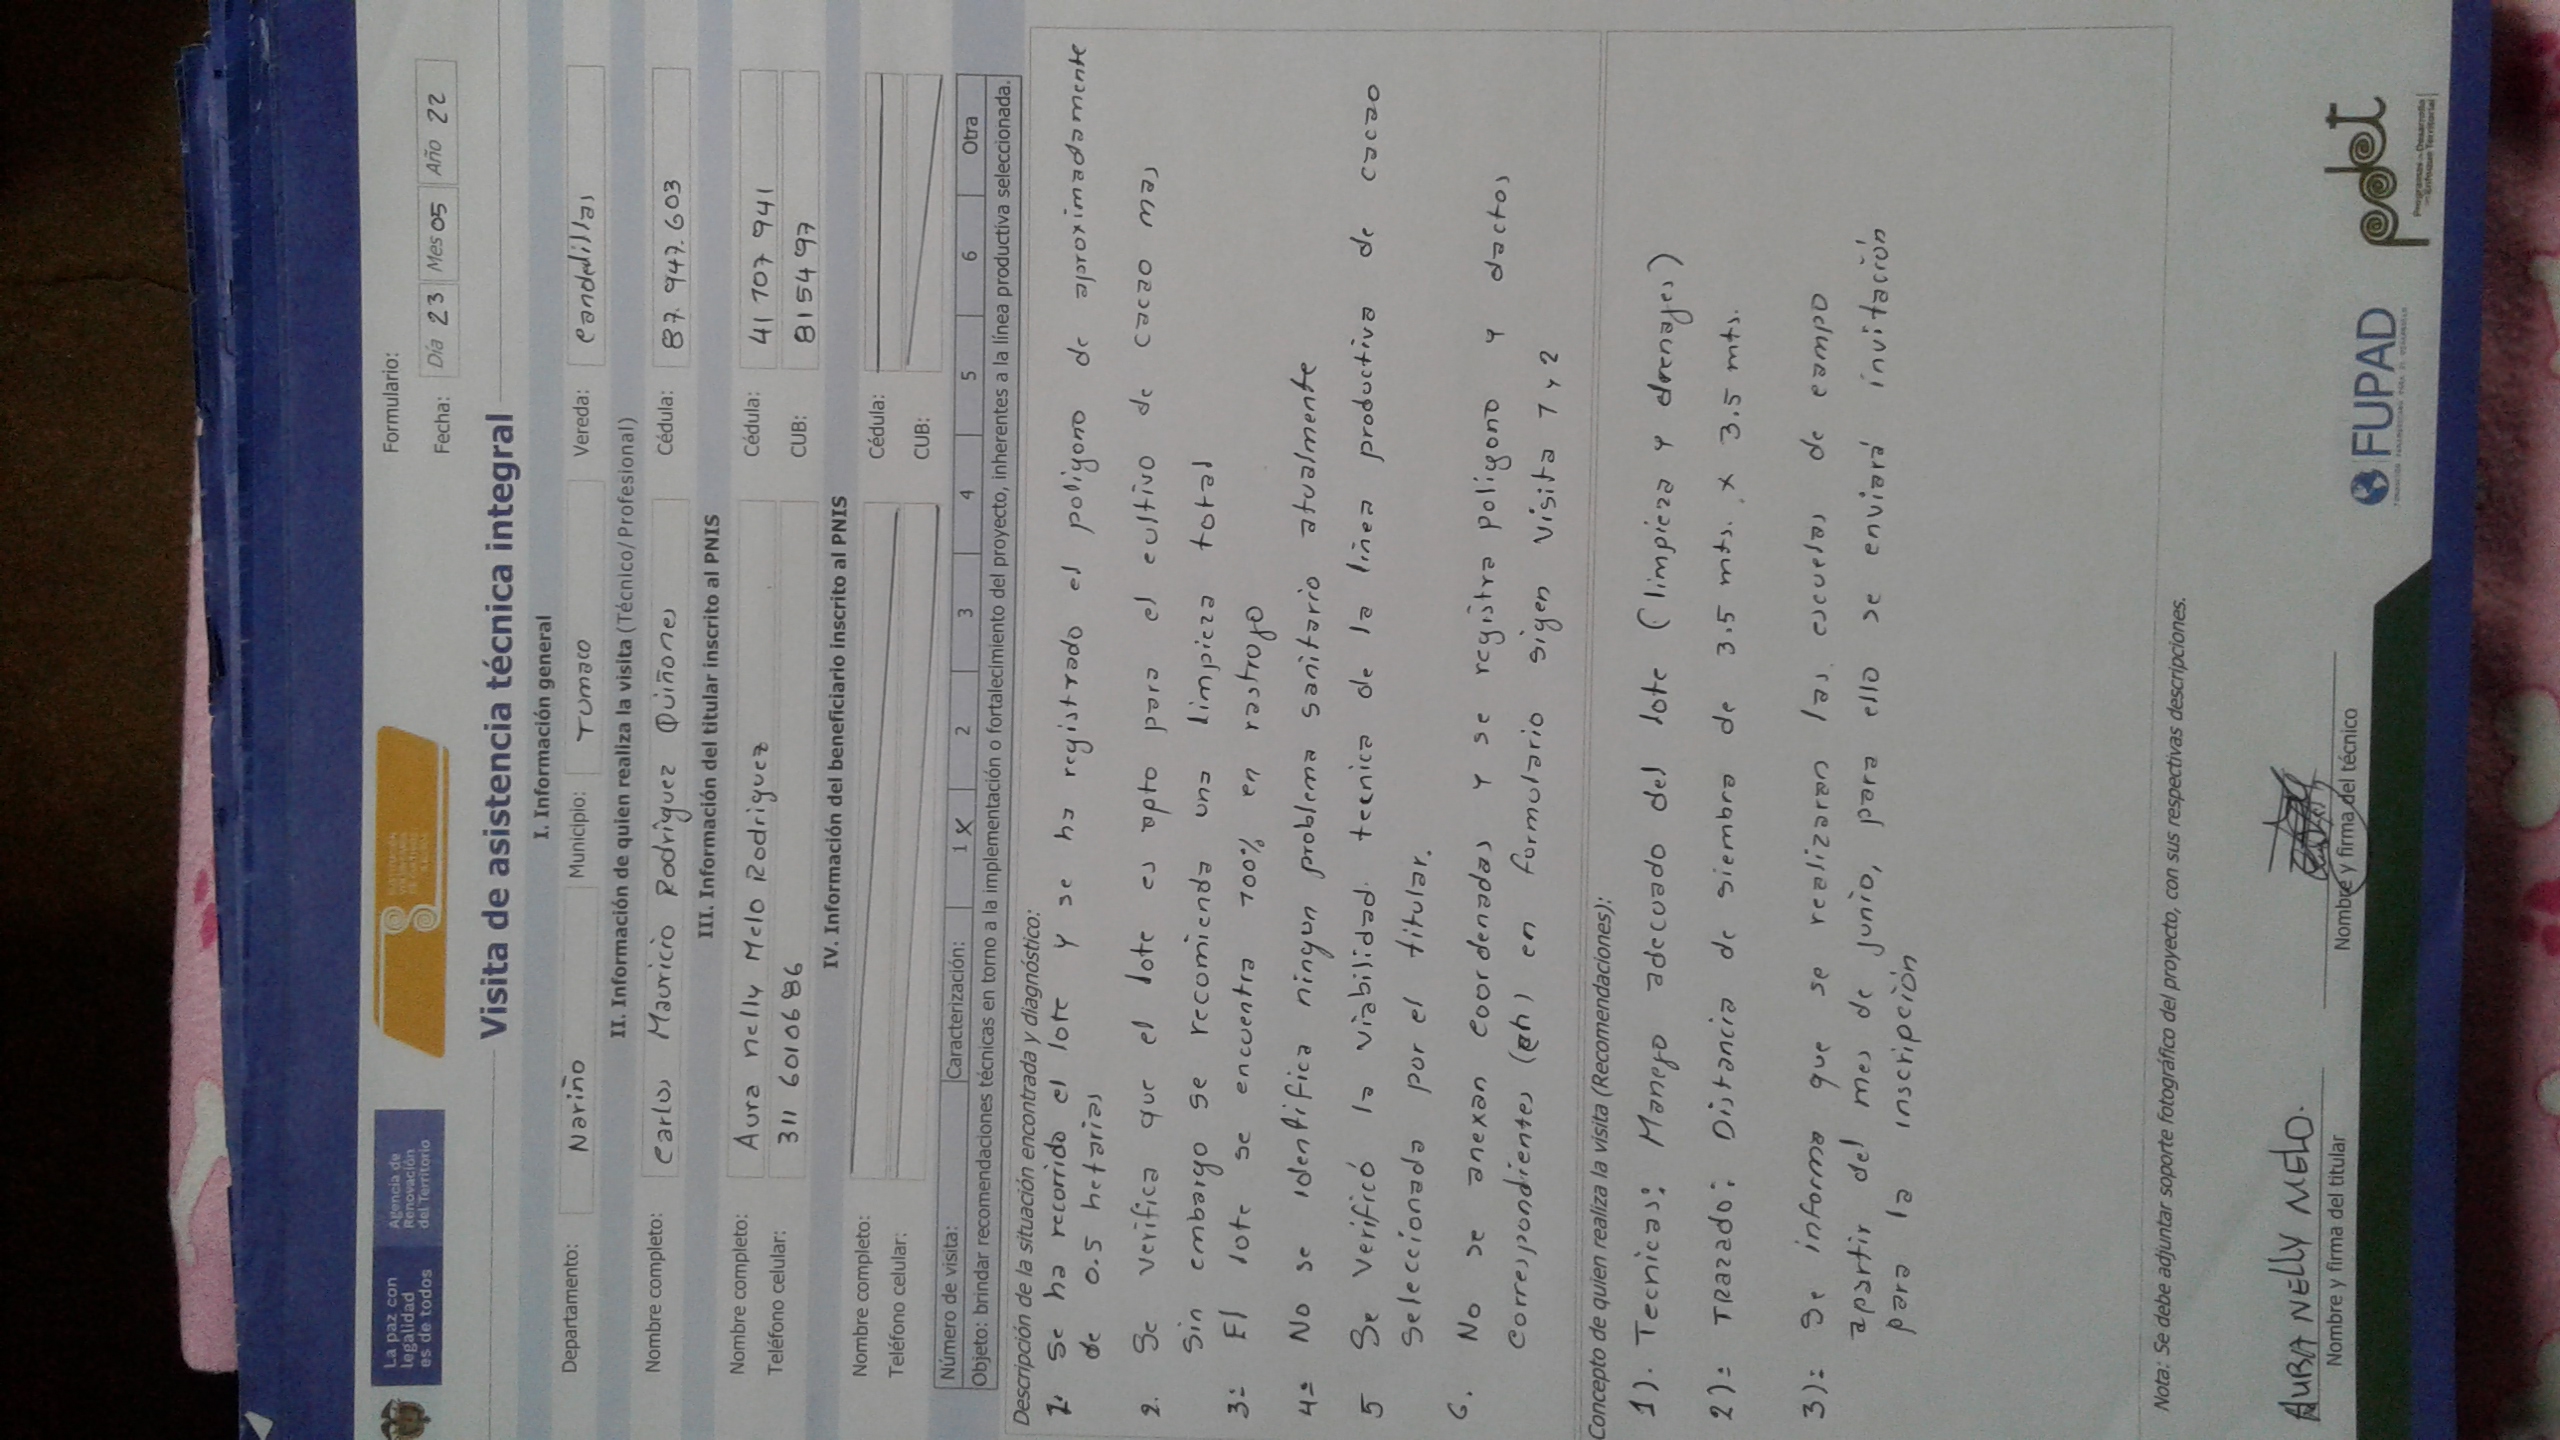 La paz con
legalidad
es de todos
Agencia de
Renovación
del Territorio
Formulario:
Fecha: Día 23 Mes 05 Año 22
Visita de asistencia técnica integral
I. Información general
Departamento: Nariño Municipio: Tumaco Vereda: Candelillas
II. Información de quien realiza la visita (Técnico/Profesional)
Nombre completo: Carlos Mauricio Rodriguez Quiñones Cédula: 87.947.603
III. Información del titular inscrito al PNIS
Nombre completo: Aura nelly Melo Rodriguez Cédula: 41 707 941
Teléfono celular: 311 6010686 CUB: 8154 97
IV. Información del beneficiario inscrito al PNIS
Nombre completo: Cédula:
Teléfono celular: CUB:
Número de visita: Caracterización: 1 X 2 3 4 5 6 Otra
Objeto: brindar recomendaciones técnicas en torno a la implementación o fortalecimiento del proyecto, inherentes a la línea productiva seleccionada.
Descripción de la situación encontrada y diagnóstico:
1: Se ha recorrido el lote y se ha registrado el poligono de aproximadamente
de 0.5 hetarias
2. Se verifica que el lote es apto para el cultivo de cacao mas
Sin embargo se recomienda una limpieza total
3: El lote se encuentra 100% en rastrojo
4: No se identifica ningun problema sanitario atualmente
5 Se verificó la viabilidad tecnica de la linea productiva de cacao
seleccionada por el titular.
6. No se anexan coordenadas y se registra poligono y dactos
correspondientes (@h) en formulario sigen visita 1 y 2
Concepto de quien realiza la visita (Recomendaciones):
1). Tecnicas: Manejo adecuado del lote (limpieza y drenajes)
2): TRAZADO: Distancia de siembra de 3.5 mts. x 3.5 mts.
3): Se informa que se realizaran las escuelas de campo
apartir del mes de junio, para ello se enviará invitación
para la inscripción
Nota: Se debe adjuntar soporte fotográfico del proyecto, con sus respectivas descripciones.
AURA NELLY MELO.
Nombre y firma del titular
Nombre y firma del técnico
FUPAD
pdet
Programas de Desarrollo
con Enfoque Territorial